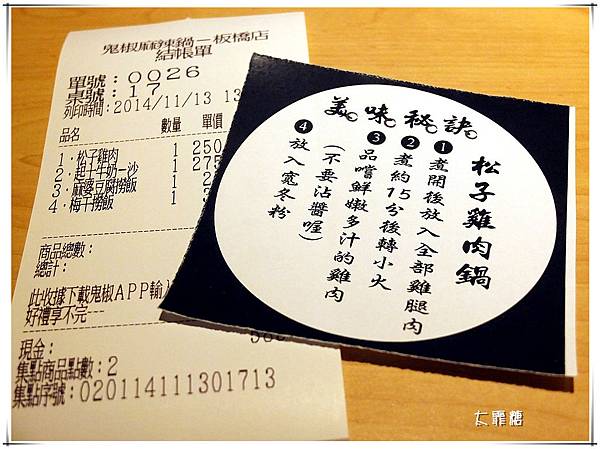 鬼椒麻辣鍋－板橋店
結帳單
單號：0026
桌號：17
列印時間：2014/11/13 13
品名 數量 單價
1．松子雞肉 1 250
2．起士牛奶一沙 1 275
3．麻婆豆腐撈飯 1 2
4．梅干撈飯 1
商品總數：
總計：
此收據下載鬼椒APP輸入
好禮享不完---
現金：
集點商品點數：2
集點序號：020114111301713
美味秘訣
松子雞肉鍋
❶煮開後放入全部雞腿肉
❷煮約15分後轉小火
❸品嚐鮮嫩多汁的雞肉
（不要沾醬喔）
❹放入寬冬粉
大罪糖